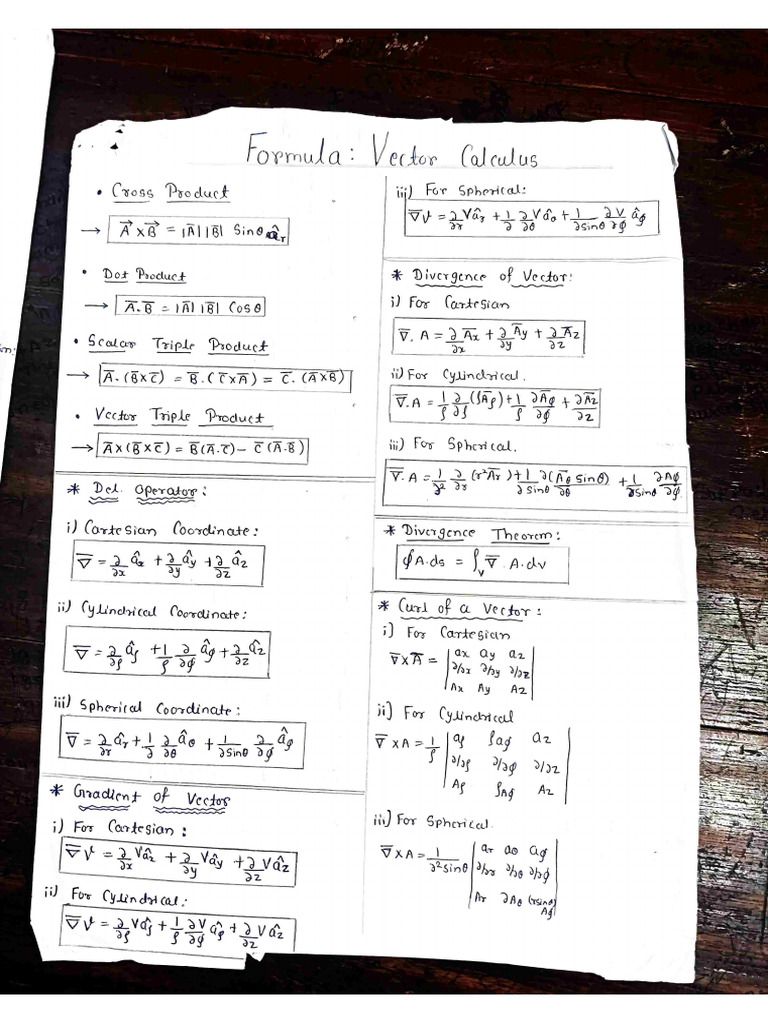 Formula: Vector Calculus
• Cross Product
→ A⃗ × B⃗ = |A̅| |B̅| Sinθ
• Dot Product
→ A̅.B̅ = |A̅| |B̅| Cosθ
• Scalar Triple Product
→ A̅.(B̅×C̅) = B̅.(C̅×A̅) = C̅.(A̅×B̅)
• Vector Triple Product
→ A̅×(B̅×C̅) = B̅(A̅.C̅) − C̅(A̅.B̅)
* Del. Operator:
i) Cartesian Coordinate:
∇̅ = ∂/∂x âx + ∂/∂y ây + ∂/∂z âz
ii) Cylindrical Coordinate:
∇̅ = ∂/∂ρ âρ + 1/ρ ∂/∂φ âφ + ∂/∂z âz
iii) Spherical Coordinate:
∇̅ = ∂/∂r âr + 1/∂ ∂/∂θ âθ + 1/∂sinθ ∂/∂φ âφ
* Gradient of Vector
i) For Cartesian:
∇̅V = ∂/∂x Vâx + ∂/∂y Vây + ∂/∂z Vâz
ii) For Cylindrical:
∇̅V = ∂/∂ρ Vâρ + 1/ρ ∂V/∂φ âρ + ∂/∂z Vâz
iii) For Spherical:
∇̅V = ∂/∂r Vâr + 1/∂ ∂/∂θ Vâθ + 1/∂sinθ ∂V/∂φ âφ
* Divergence of Vector:
i) For Cartesian
∇̅.A = ∂/∂x A̅x + ∂/∂y A̅y + ∂/∂z A̅z
ii) For Cylindrical.
∇̅.A = 1/ρ ∂/∂ρ (ρA̅ρ) + 1/ρ ∂A̅φ/∂φ + ∂A̅z/∂z
iii) For Spherical.
∇̅.A = 1/∂² ∂/∂r (r²A̅r) + 1/∂sinθ ∂(A̅θ sinθ)/∂θ + 1/∂sinθ ∂Aφ/∂φ
* Divergence Theorem:
∮A.ds = ∫v ∇̅.A.dv
* Curl of a Vector:
i) For Cartesian
∇̅×A̅ = | ax ay az |
| ∂/∂x ∂/∂y ∂/∂z |
| Ax Ay Az |
ii) For Cylindrical
∇̅×A = 1/ρ | aρ ρaφ az |
| ∂/∂ρ ∂/∂φ ∂/∂z |
| Aρ ρAφ Az |
iii) For Spherical.
∇̅×A = 1/∂²sinθ | ar aθ aφ |
| ∂/∂r ∂/∂θ ∂/∂φ |
| Ar ∂Aθ (rsinθ)Aφ |